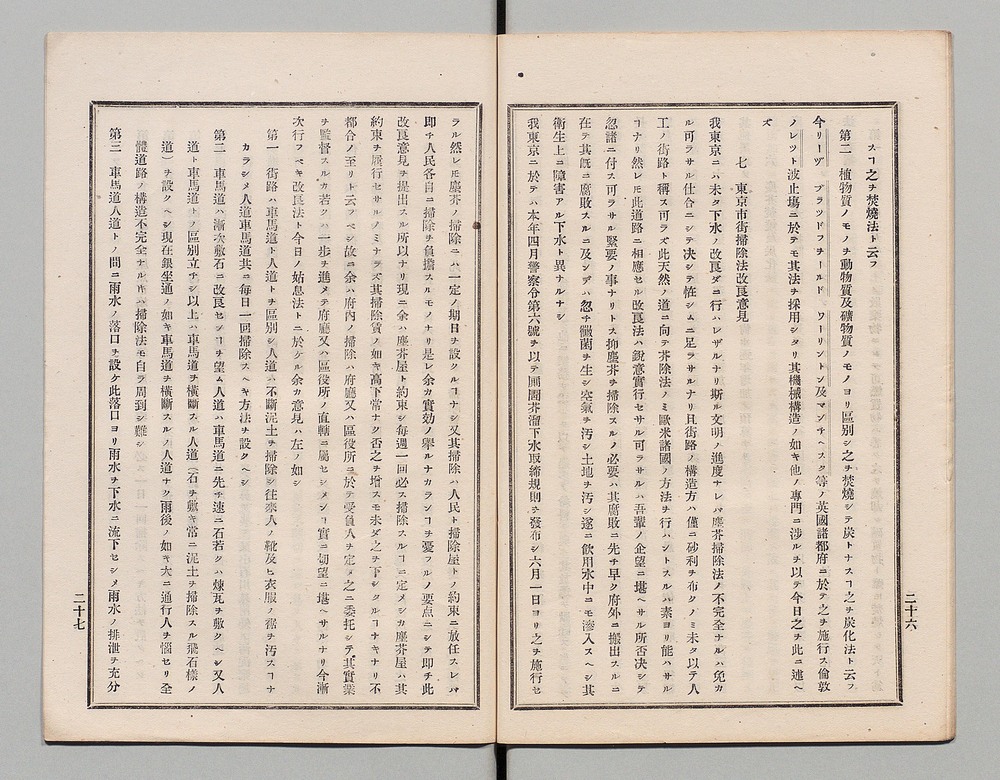 スヿ之ヲ焚燒法ト云フ
第二 植物質ノモノヲ動物質及礦物質ノモノヨリ區別シ之ヲ焚燒シテ炭トナスヿ之ヲ炭化法ト云フ
今リーヅ ブラツドフヲールド ワーリントン及マンチヘスタ等ノ英國諸都府ニ於テ之ヲ施行ス倫敦
ノレツト波止塲ニ於テモ其法ヲ採用シタリ其機械構造ノ如キ他ノ專門ニ涉ルヲ以テ今日之ヲ此ニ述ヘ
ズ
七 東京市街掃除法改良意見
我東京ニハ未タ下水ノ改良ダニ行ハレザルナリ斯ル文明ノ進度ナレバ塵芥掃除法ノ不完全ナルハ免カ
ル可ラサル仕合ニシテ决シテ恠シムニ足ラサルナリ且街路ノ構造方ハ僅ニ砂利ヲ布クノミ未タ以テ人
工ノ街路ト稱ス可ラズ此天然ノ道ニ向テ芥除法ノミ歐米諸國ノ方法ヲ行ハントスルハ素ヨリ能ハサル
ヿナリ然レ𪜈此道路ニ相應セル改良法ハ銳意實行セサル可ラサルハ吾輩ノ企望ニ堪ヘサル所否决シテ
忽諸ニ付ス可ラサル緊要ノ事ナリトス抑塵芥ヲ掃除スルノ必要ハ其腐敗ニ先チ早ク府外ニ搬出スルニ
在テ其既ニ腐敗スルニ及ンデハ忽チ黴菌ヲ生シ空氣ヲ汚シ土地ヲ汚シ遂ニ飮用水中ニモ滲入スヘシ其
衛生上ニ障害アル下水ト異ナルナシ
我東京ニ於テハ本年四月警察令第六號ヲ以テ圊圂芥溜下水取締規則ヲ發布シ六月一日ヨリ之ヲ施行セ
二十六
ラル然レ𪜈塵芥ノ掃除ニハ一定ノ期日ヲ設クルヿナシ又其掃除ハ人民ト掃除屋トノ約束ニ放任スレバ
即チ人民各自ニ掃除ヲ負擔スルモノナリ是レ余カ實効ノ擧ルナカランヿヲ憂フルノ要点ニシテ即チ此
改良意見ヲ提出スル所以ナリ現ニ余ハ塵芥屋ト約束シ每週一回必ス掃除スルヿニ定メシカ塵芥屋ハ其
約束ヲ履行セサルノミナラズ其掃除賃ノ如キ高下常ナク否之ヲ增スモ未ダ之ヲ下シタルヿナキナリ不
都合ノ至リト云フベシ故ニ余ハ府內ノ掃除ハ府廳又ハ區役所ニ於テ受負人ヲ定メ之ニ委托シテ其實業
ヲ監督スルカ若クハ一步ヲ進メテ府廳又ハ區役所ノ直轄ニ屬セシメンヿ實ニ切望ニ堪ヘサルナリ今漸
次行フベキ改良法ト今日ノ姑息法トニ於ケル余カ意見ハ左ノ如シ
第一 街路ハ車馬道ト人道トヲ區別シ人道ハ不斷泥土ヲ掃除シ往來人ノ靴及ヒ衣服ノ裾ヲ汚スヿナ
カラシメ人道車馬道共ニ每日一回掃除スヘキ方法ヲ設クヘシ
第二 車馬道ハ漸次敷石ニ改良センヿヲ望ム人道ハ車馬道ニ先チ速ニ石若クハ煉瓦ヲ敷クヘシ又人
道ト車馬道トノ區別立チシ以上ハ車馬道ヲ橫斷スル人道(石ヲ敷キ常ニ泥土ヲ掃除スル飛石樣ノ
道)ヲ設クヘシ現在銀坐通ノ如キ車馬道ヲ橫斷スルノ人道ナク雨後ノ如キ大ニ通行人ヲ惱セリ全
體道路ノ構造不完全ナルキハ掃除法モ自ラ周到シ難シ
第三 車馬道人道トノ間ニ雨水ノ落口ヲ設ケ此落口ヨリ雨水ヲ下水ニ流下セシメ雨水ノ排泄ヲ充分
二十七